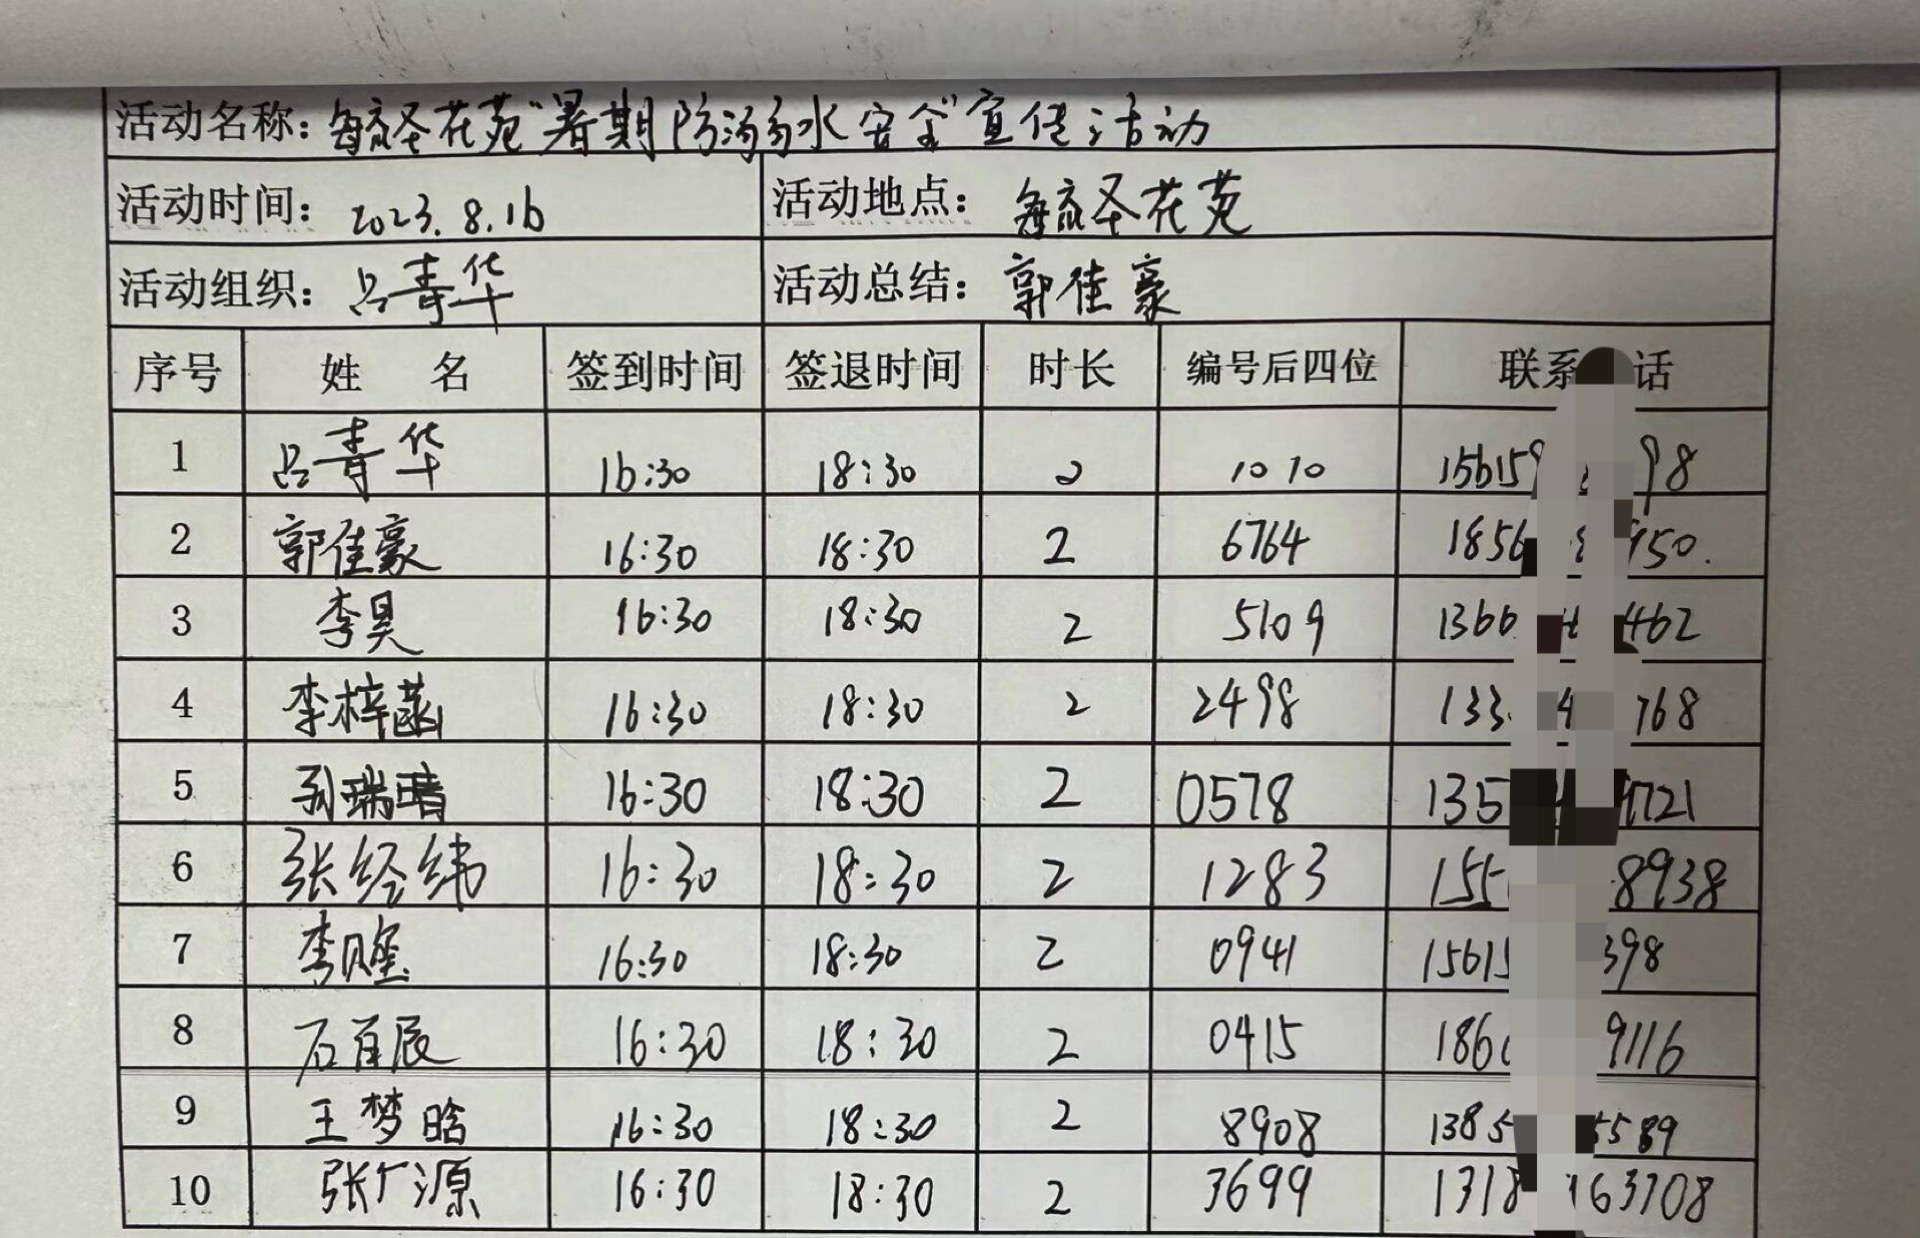 活动名称：毓圣花苑“暑期防溺水安全”宣传活动
活动时间：2023.8.16 活动地点：毓圣花苑
活动组织：吕青华 活动总结：郭佳豪
序号 姓名 签到时间 签退时间 时长 编号后四位 联系 话
1 吕青华 16:30 18:30 2 1010 15615 98
2 郭佳豪 16:30 18:30 2 6764 1856 950.
3 李昊 16:30 18:30 2 5109 1366 462
4 李梓菡 16:30 18:30 2 2498 133 4 768
5 孙瑞晴 16:30 18:30 2 0578 135 4721
6 张经纬 16:30 18:30 2 1283 155 8938
7 李 16:30 18:30 2 0941 15615 398
8 石百辰 16:30 18:30 2 0415 186 9116
9 王梦晗 16:30 18:30 2 8908 1385 5589
10 张广源 16:30 18:30 2 3699 1318 163708